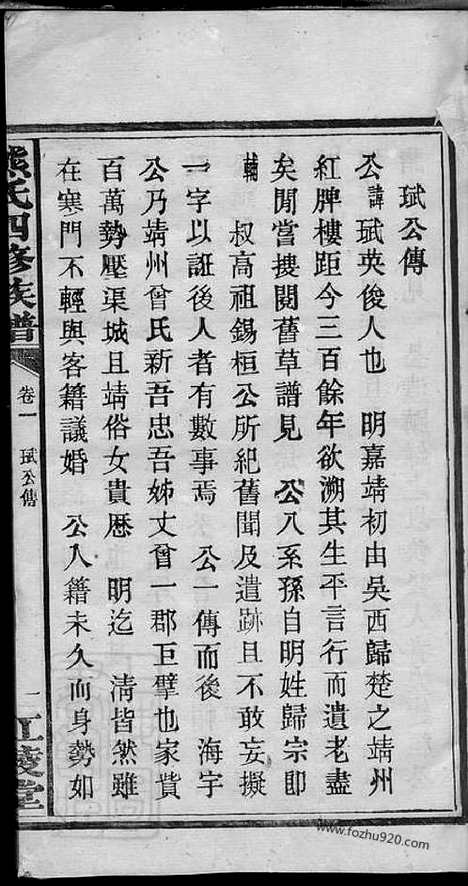 珷公傳
公諱珷英俊人也　明嘉靖初由吳西歸楚之靖州
紅牌樓距今三百餘年欲溯其生平言行而遺老盡
矣閒嘗搜閱舊草譜見　公八系孫自明姓歸宗即
輔　叔高祖錫桓公所紀舊聞及遺跡且不敢妄擬
一字以誑後人者有數事焉　公一傳而後　海宇
公乃靖州曾氏新吾忠吾姊丈曾一郡巨擘也家貲
百萬勢壓渠城且靖俗女貴歷　明迄　清皆然雖
在寒門不輕與客籍議婚　公入籍未久而身勢如
熊氏四修族譜
卷一
珷公傳
一
江陵堂
www.fozhu920.com